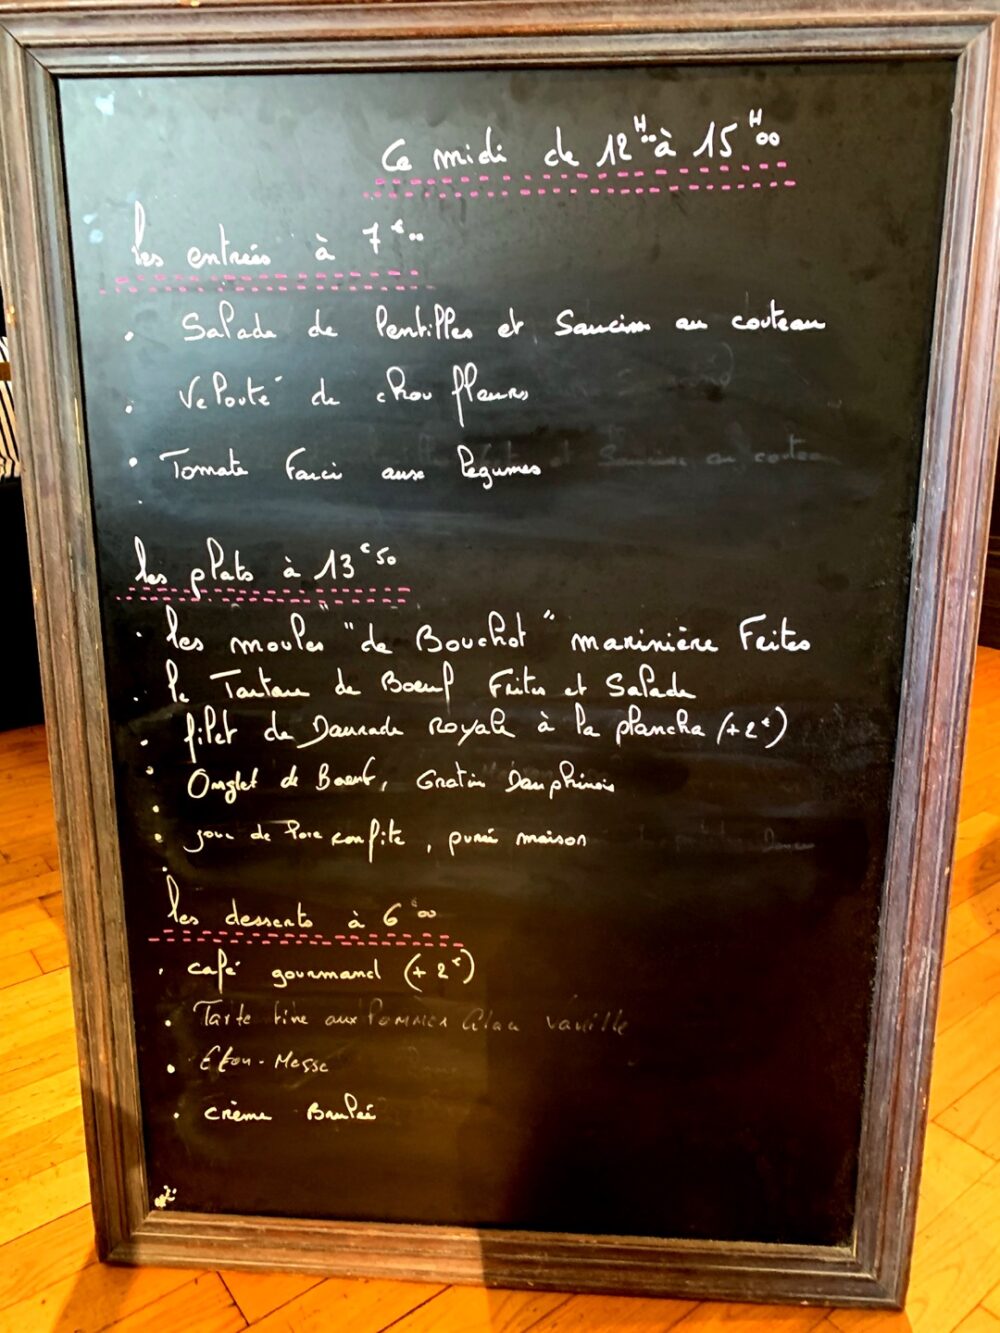 Ce midi de 12H00 à 15H00
les entrées à 7€00
• Salade de lentilles et Saucisson au couteau
• Velouté de chou fleurs
• Tomate Farci aux légumes
les plats à 13€50
• les moules "de Bouchot" marinière Frites
• le Tartare de Boeuf Frites et Salade
• filet de Daurade Royale à la plancha (+2€)
• Onglet de Boeuf, Gratin Dauphinois
• joue de Porc confite, purée maison
les desserts à 6€00
• café gourmand (+2€)
• Tarte fine aux Pommes Glace Vanille
• Eton-Messe
• crème Brulée